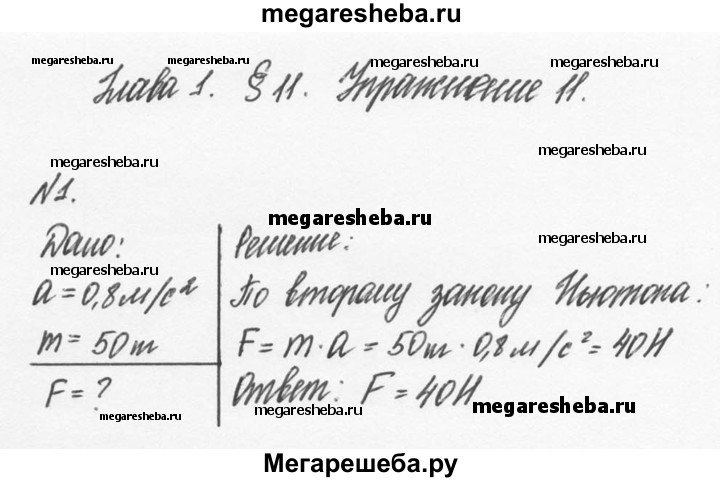 megaresheba.ru
megaresheba.ru megaresheba.ru megaresheba.ru
Глава 1. § 11. Упражнение 11.
megaresheba.ru
megaresheba.ru
№1.
megaresheba.ru
Дано: Решение:
megaresheba.ru
megaresheba.ru
a = 0,8 м/с² По второму закону Ньютона:
m = 50т F = m · a = 50т · 0,8 м/с² = 40Н
F = ? Ответ: F = 40Н
megaresheba.ru megaresheba.ru megaresheba.ru
Мегарешеба.ру